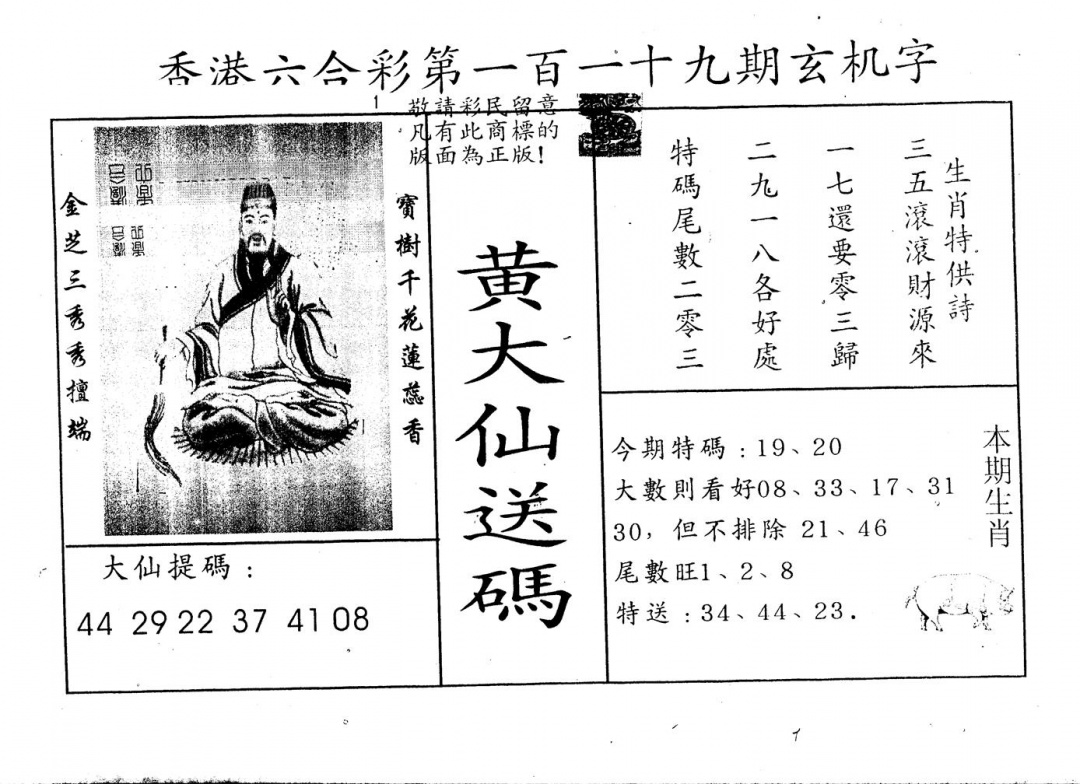 香港六合彩第一百一十九期玄机字
敬請彩民留意
凡有此商標的
版面為正版!
金芝三秀秀擅端
寶樹千花蓮蕊香
黄大仙送碼
生肖特供詩
三五滾滾財源來
一七還要零三歸
二九一八各好處
特碼尾數二零三
大仙提碼:
44 29 22 37 41 08
本期生肖
今期特碼:19、20
大數則看好08、33、17、31
30,但不排除 21、46
尾數旺1、2、8
特送:34、44、23.